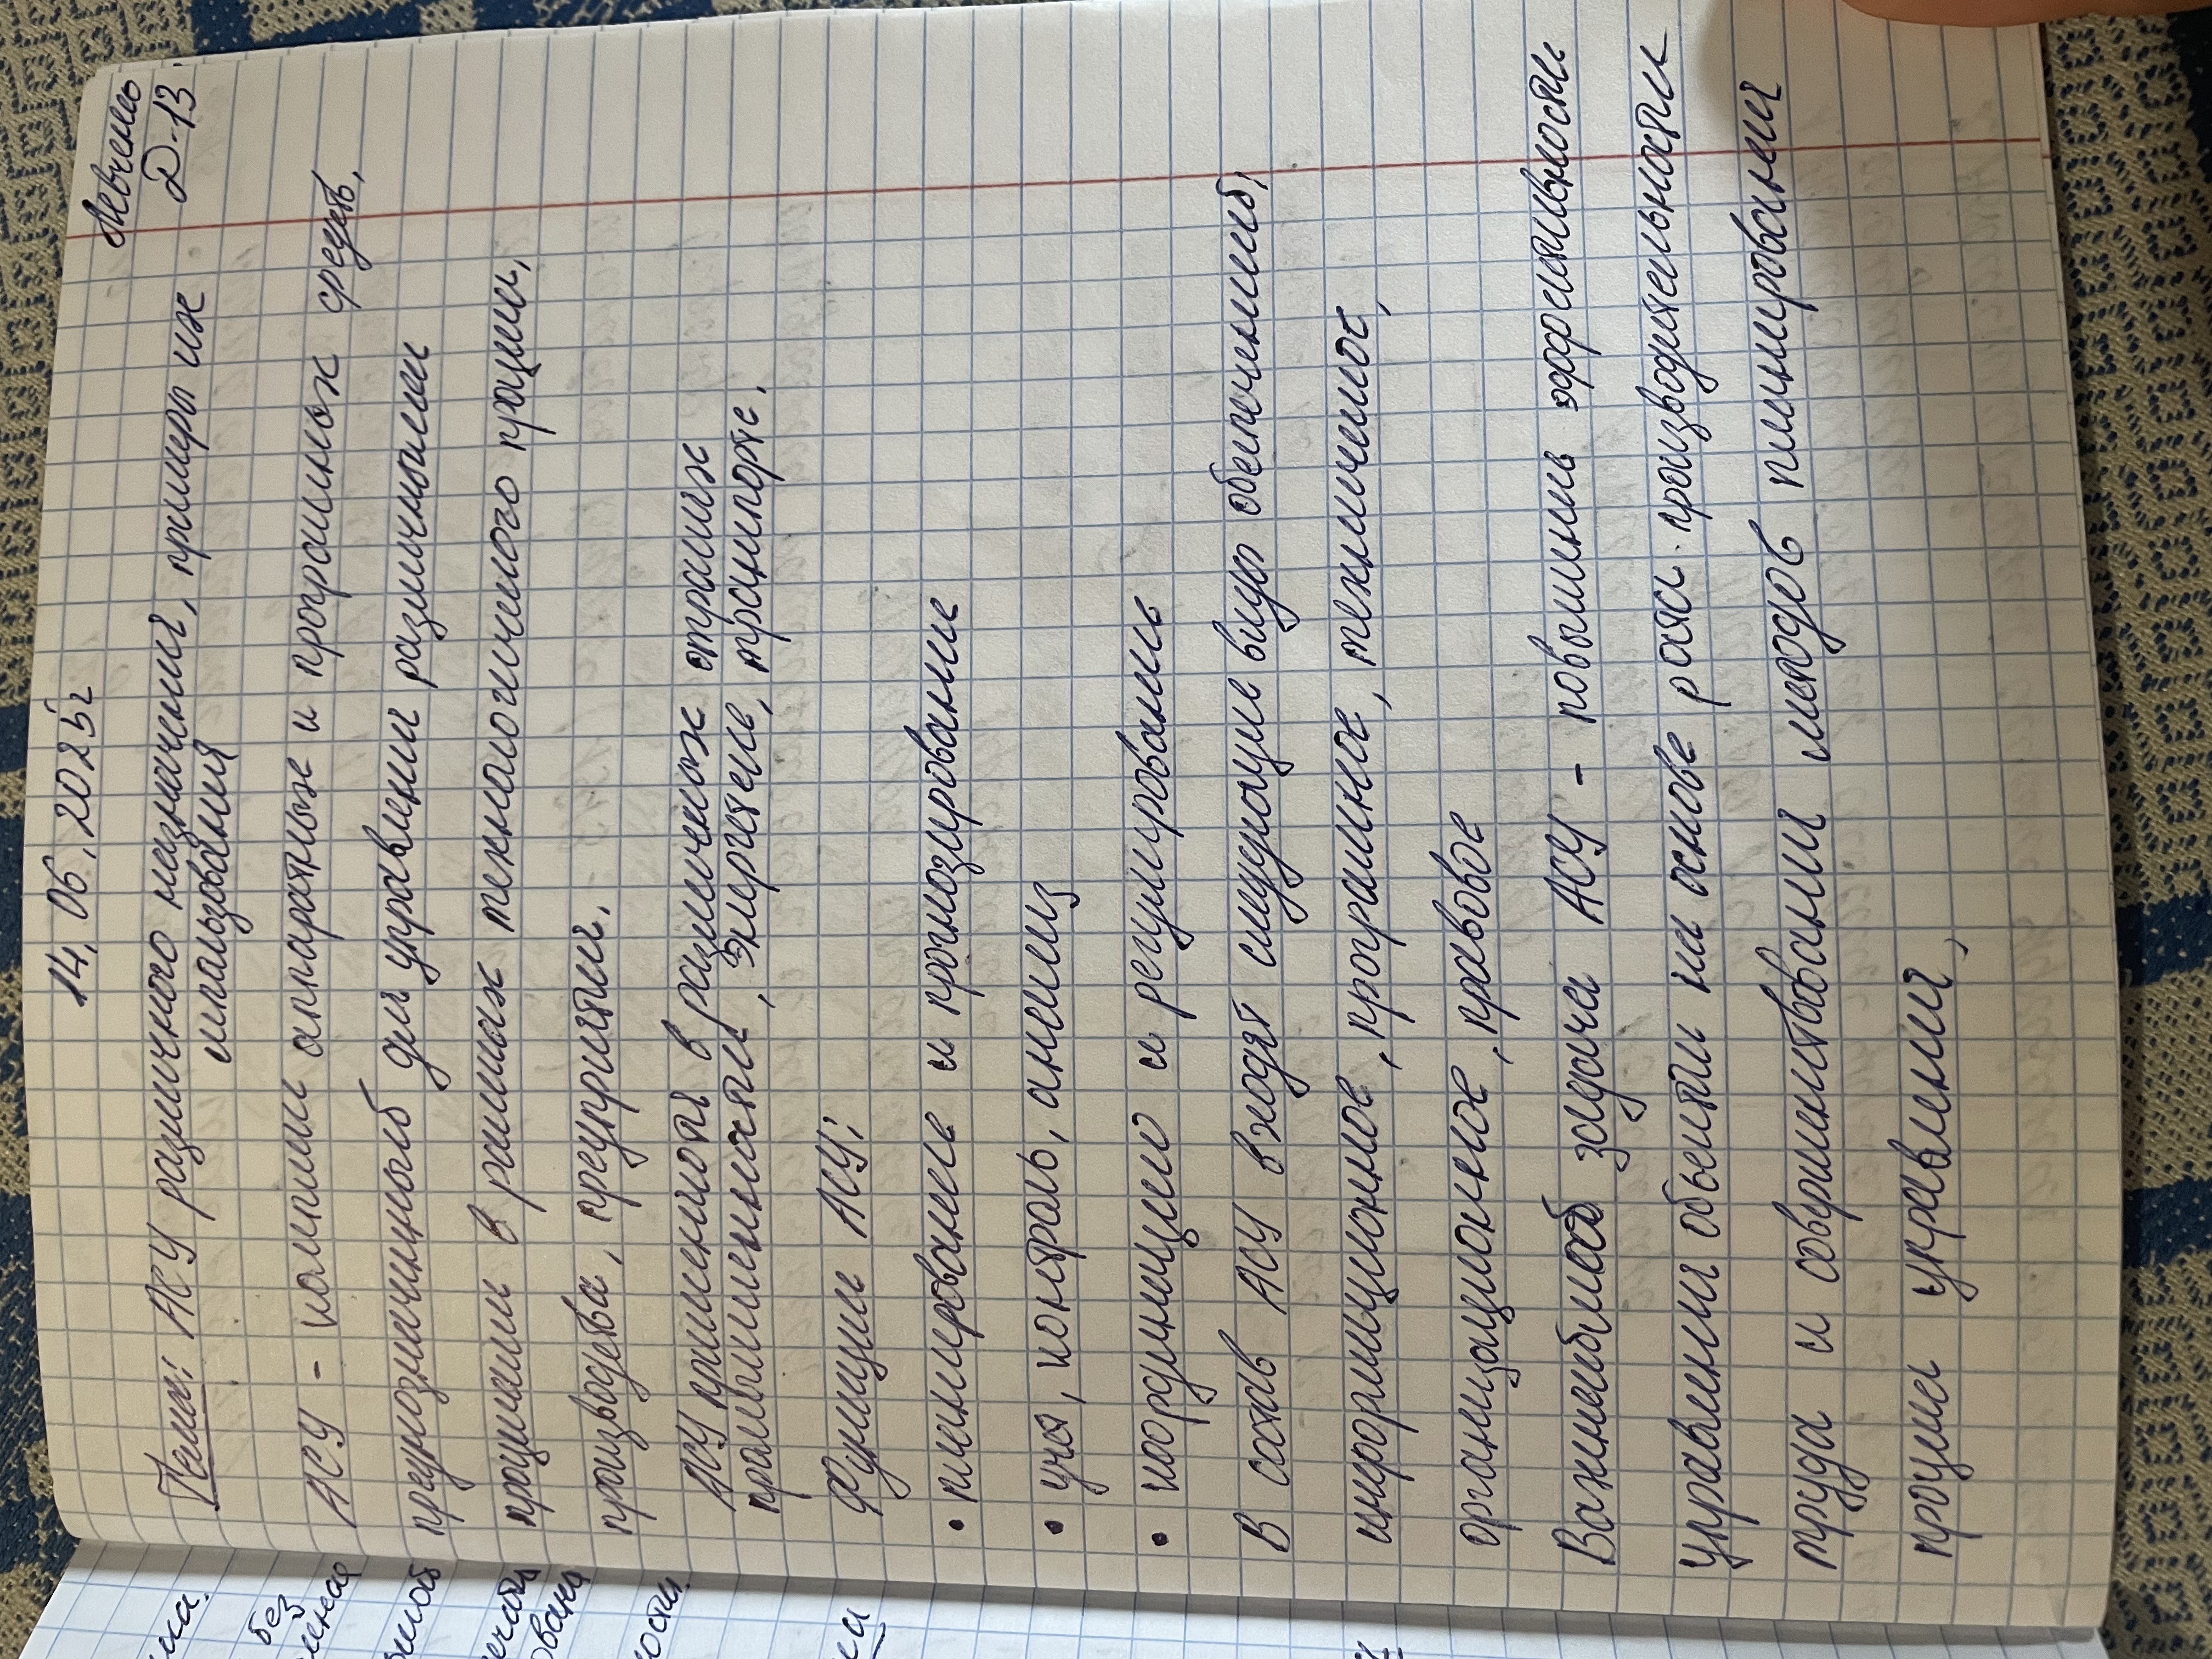 14.06.2025г
Левчень
Д-13
Тема: АСУ различного назначения, примеры их
использования
АСУ - комплекс аппаратных и программных средств,
предназначенный для управления различными
процессами в рамках технологического процесса,
производства, предприятия.
АСУ применяются в различных отраслях
промышленности, энергетике, транспорте.
Функции АСУ:
• планирование и прогнозирование
• учёт, контроль, анализ
• координацию и регулирование
В состав АСУ входят следующие виды обеспечений:
информационное, программное, техническое,
организационное, правовое
Важнейшая задача АСУ - повышение эффективности
управления объектом на основе роста производительности
труда и совершенствования методов планирования
процесса управления.
без
ости